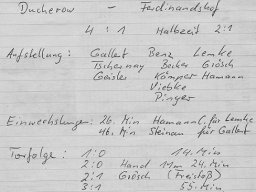 Ducherow - Ferdinandshof
4 : 1 Halbzeit 2:1
Aufstellung : Gallert Benz Lemke
Tschernay Becker Grösch
Geisler Kämper Hamann
Viebke
Pinger
Einwechslungen: 26. Min Hamann C. für Lemke
46. Min Steinau für Gallert
Torfolge : 1:0 14. Min
2:0 Hand 11m 24. Min
2:1 Grösch (Freistoß)
3:1 55. Min